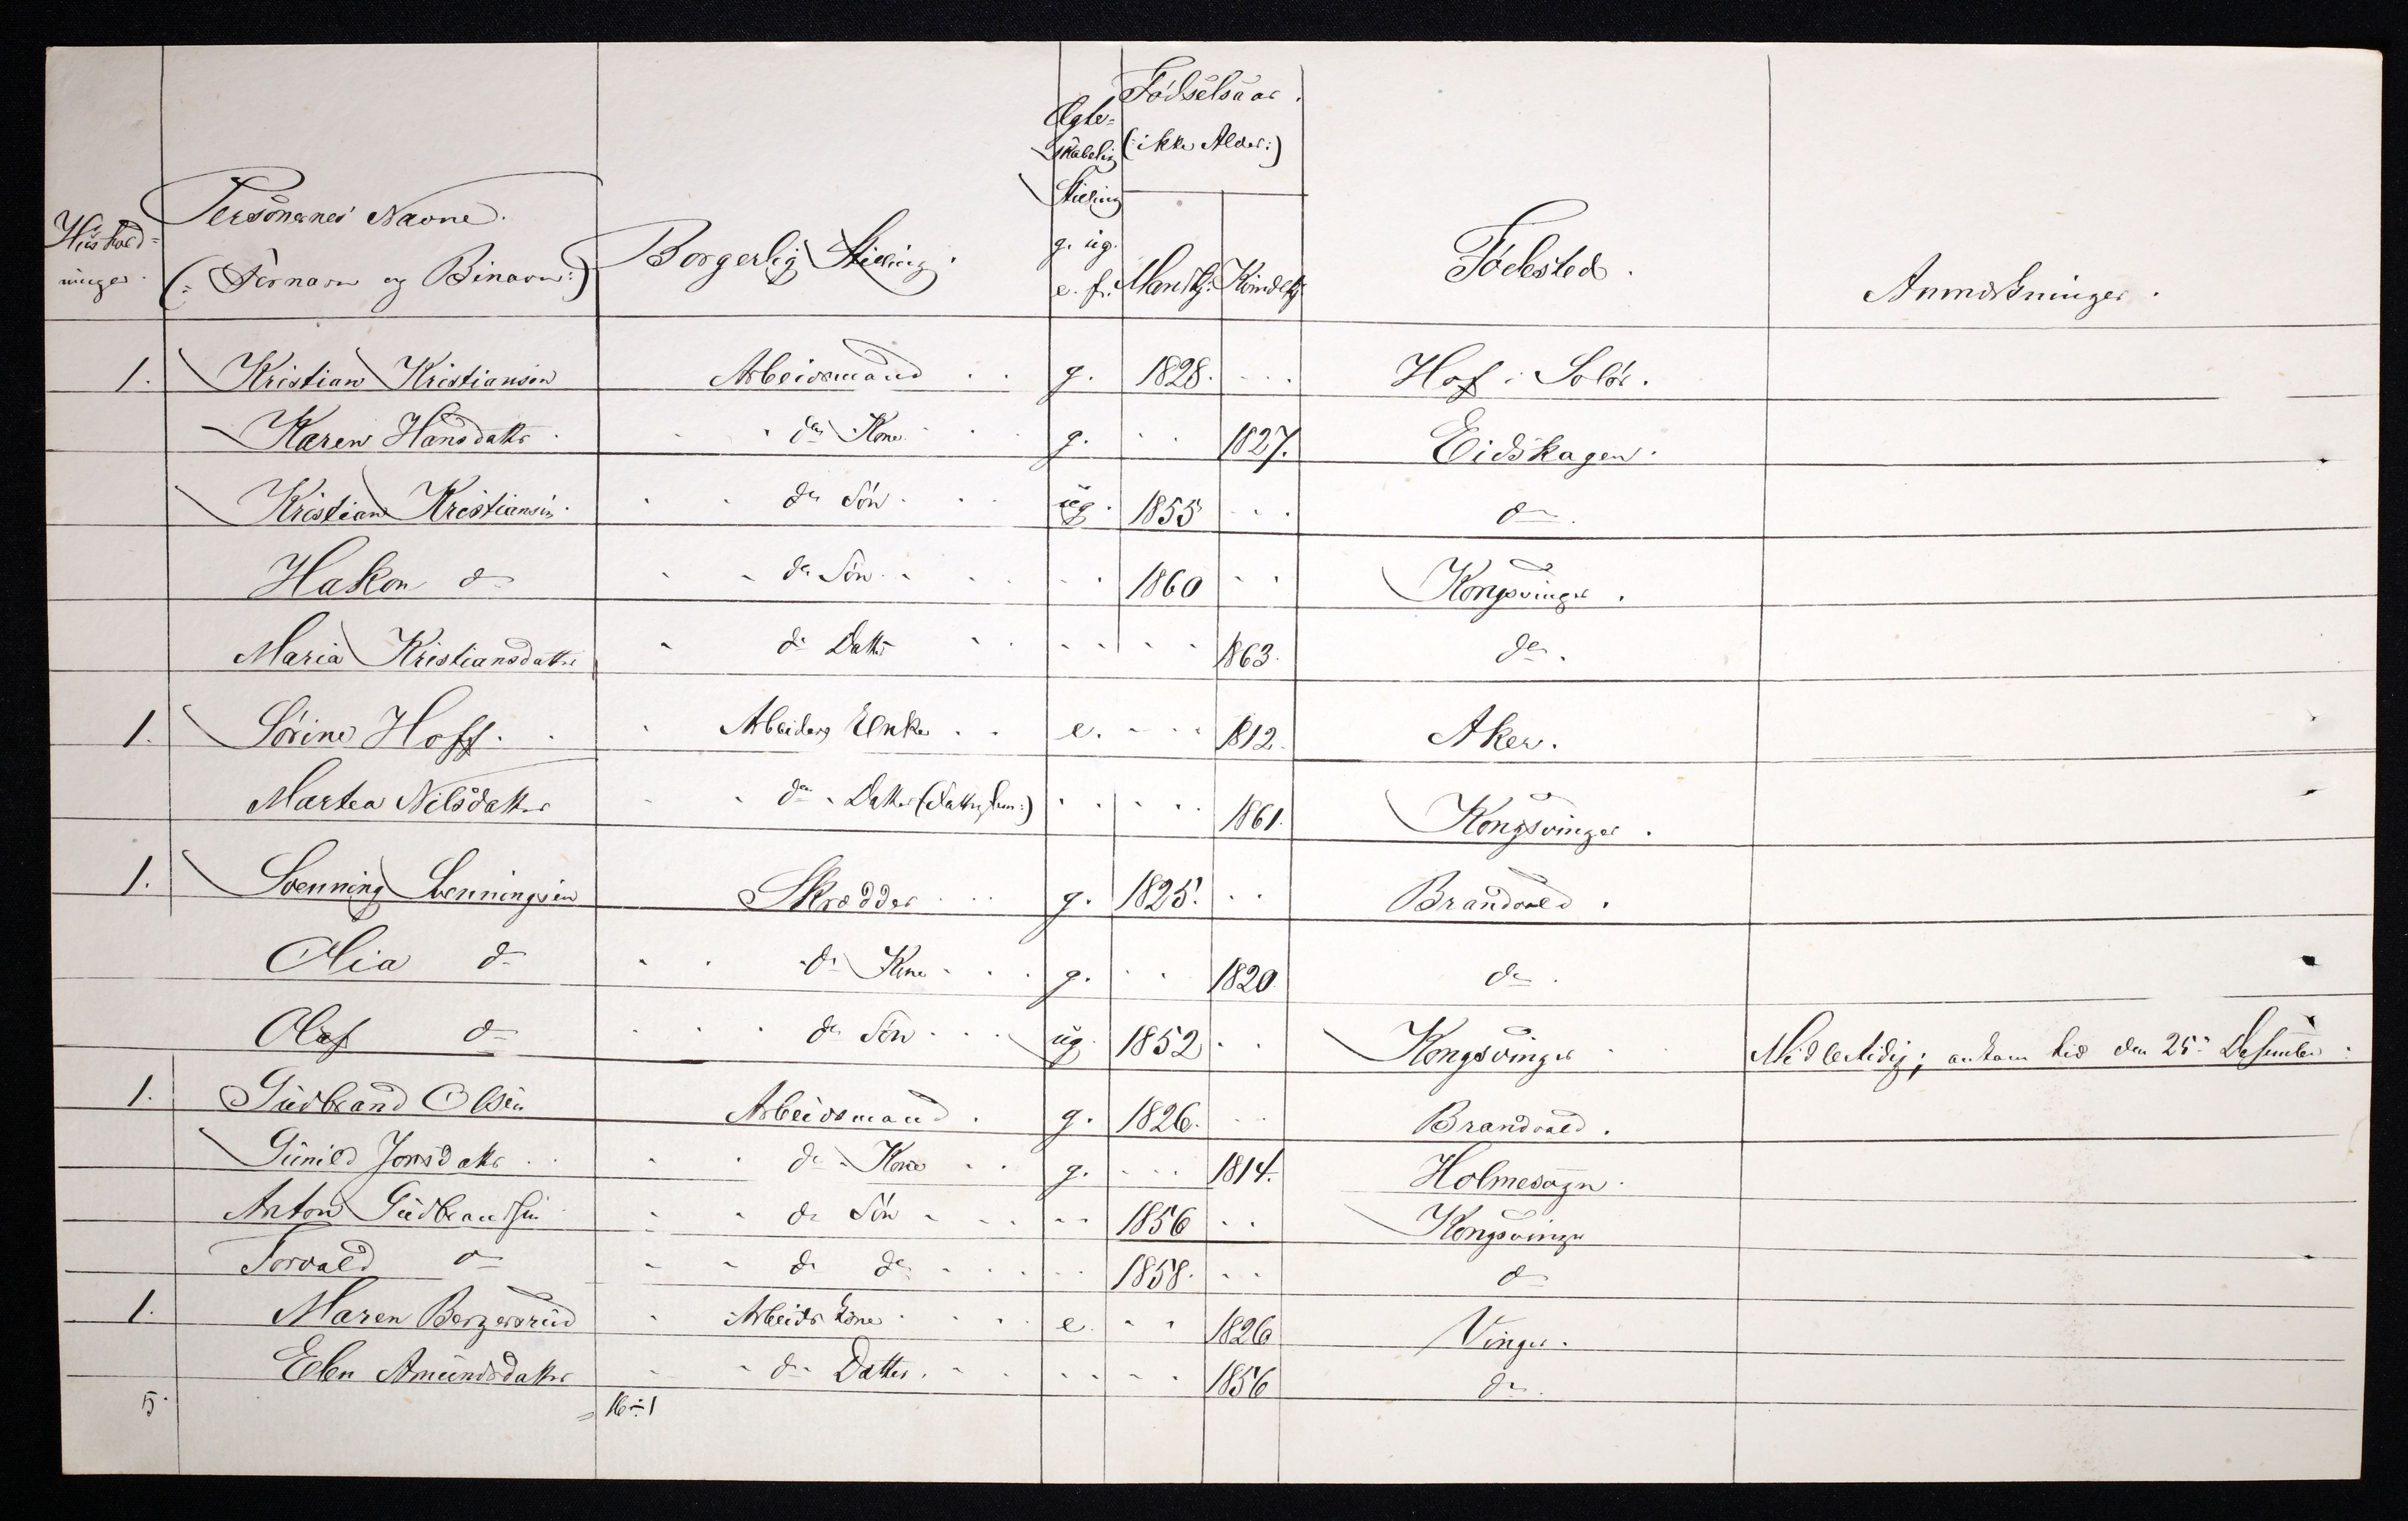 Husholdninger. | Personernes Navne. (: Fornavn og Binavn:) | Borgerlig Stilling. | Ægteskabelig Stilling g. ug. e. f. | Fødselsaar. (:ikke Alder:) Mandkj. | Kvindekj. | Fødested. | Anmærkninger.
1. Kristian Kristiansen Arbeidsmand . . g. 1828. . . . Hof i Solør.
Karen Hansdatter ds Kone g. . . 1827. Eidskagen.
Kristian Kristiansen ds Søn ug. 1855 . . . do.
Hakon do ds Søn . . 1860 . . Kongsvinger.
Maria Kristiansdatter ds Datter . . . . 1863. do.
1. Sørine Hoff. Arbeiders Enke . . e. . . . 1812. Aker.
Martea Nilsdatter ds Datter . . . . 1861. Kongsvinger.
1. Svenning Svenningsen Skrædder . . . g. 1825. . . Brandvold.
Olia do ds Kone . . . g. . . 1820. do.
Olaf do ds Søn . . . ug. 1852 . . Kongsvinger Midlertidig; ankom hid den 25de Desember.
1. Gudbrand Olsen Arbeidsmand. g. 1826. . . Brandvold.
Gunild Jonsdatter ds Kone . . g. . . . 1814. Holmesogn.
Anton Gudbrandsen ds Søn . . . . 1856 . . Kongsvinger
Torvald do ds do . . . . 1858. . . do
1. Maren Bergersrud Arbeids kone e. . . 1826 Vinger.
Elen Amundsdatter ds Datter. . . . . 1856 do.
5. = 16÷1